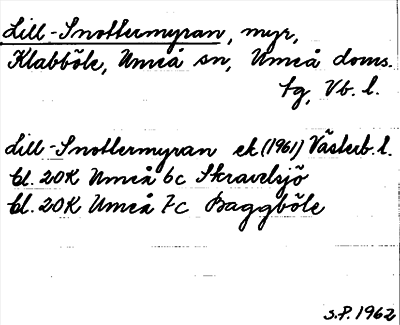 Lill-Snottermyran, myr,
Klabböle, Umeå sn, Umeå doms.
tg, Vb. l.
Lill-Snottermyran ek (1961) Västerb. l.
bl. 20K Umeå 6c Skravelsjö
bl. 20K Umeå 7c Baggböle
S.P. 1962